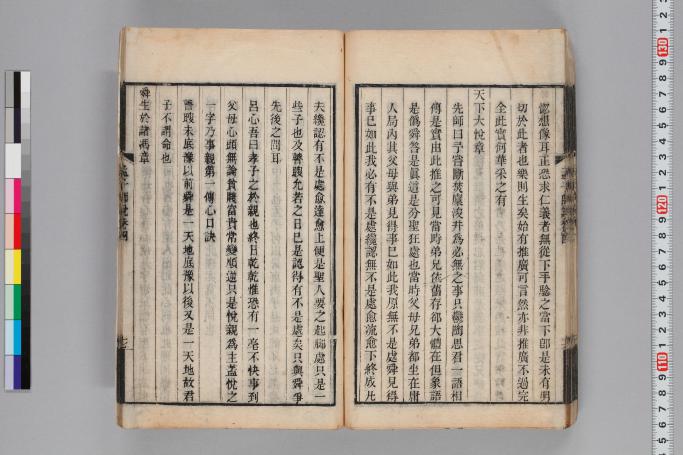 認想像耳正恐求仁義者無從下手騐之當下卽是未有男
切於此者也樂則生矣始有推廣可言然亦非推廣不過完
全此實何華采之有
天下大悅章
先師曰予嘗斷焚廩浚井為必無之事只鬱陶思君一語相
傳是實由此推之可見當時弟兄依舊存卻大體在但象語
是僞舜答是眞這是分聖狂處也當時父母兄弟都坐在庸
人局內其父母與弟見得事已如此我原無不是處舜見得
事已如此我必有不是處纔認無不是處愈流愈下終成凡
夫纔認有不是處愈達愈上便是聖人要之起脚處只是一
些子也及瞽瞍允若之日已是認得有不是處矣只與舜爭
先後之間耳
呂心吾曰孝子之於親也終日乾乾惟恐有一毫不快事到
父母心頭無論貧賤富貴常變順逆只是悅親為主蓋悅之
一字乃事親第一傳心口訣
瞽瞍未底豫以前舜是一天地底豫以後又是一天地故君
子不謂命也
舜生於諸馮章
七
130
120
110